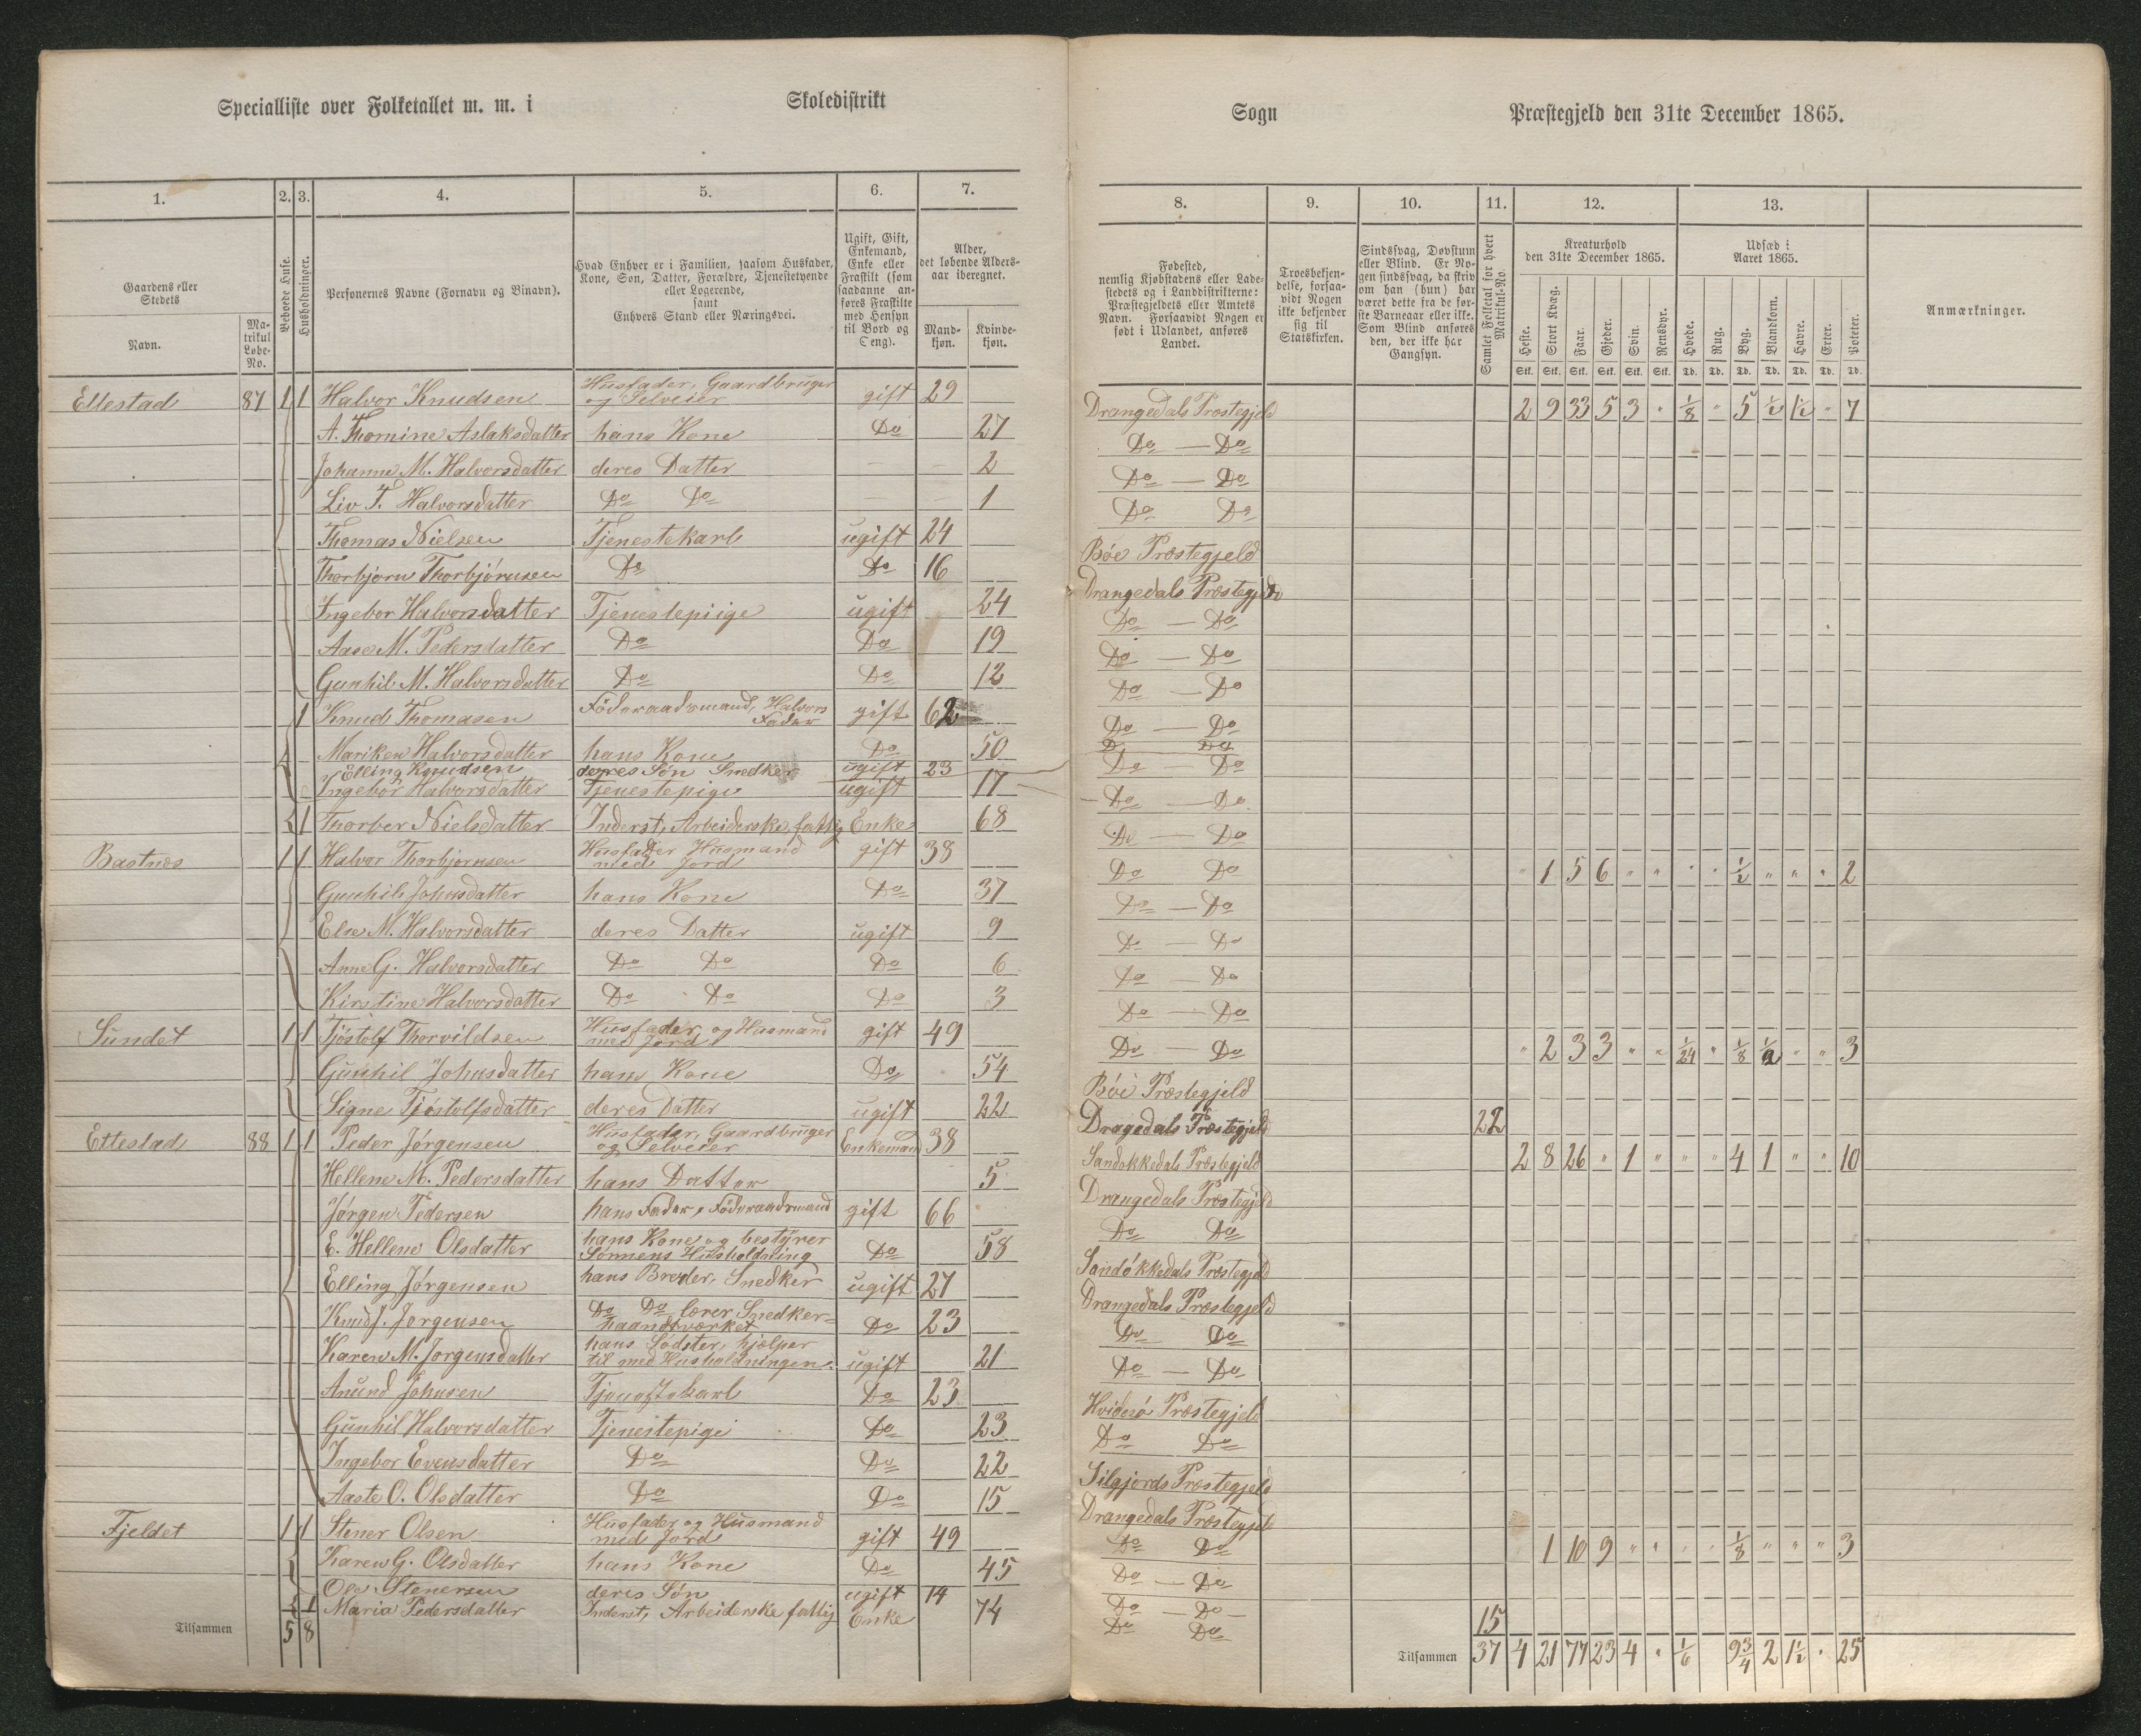 Specialliste over Folketallet m. m. i Skoledistrikt Sogn Præstegjeld den 31te December 1865.
1. 2. 3. 4. 5. 6. 7. 8. 9. 10. 11. 12. 13.
Gaardens eller Stedets
Navn.
Matrikul Løbe-No.
Beboede Huse.
Husholdninger.
Personernes Navne (Fornavn og Binavn).
Hvad Enhver er i Familien, saasom Husfader,
Kone, Søn, Datter, Forældre, Tjenestetyende
eller Logerende,
samt
Enhvers Stand eller Næringsvei.
Ugift, Gift,
Enkemand,
Enke eller
Fraskilt (som
saadanne an-
føres Fraskilte
med Hensyn
til Bord og
Seng).
Alder,
det løbende Alders-
aar iberegnet.
Mand-
kjøn.
Kvinde-
kjøn.
Fødested,
nemlig Kjøbstadens eller Lade-
stedets og i Landdistrikterne:
Præstegjeldets eller Amtets
Navn. Forsaavidt Nogen er
født i Udlandet, anføres
Landet.
Troesbekjen-
delse, forsaa-
vidt Nogen
ikke bekjender
sig til
Statskirken.
Sindssvag, Døvstum
eller Blind. Er No-
gen sindssvag, da skriv
om han (hun) har
været dette fra de før-
ste Barneaar eller ikke.
Som Blind anføres
den, der ikke har
Gangsyn.
Samlet Folketal for hvert
Matrikul-No.
Kreaturhold
den 31te December 1865.
Heste. Stort Kvæg. Faar. Gjeder. Svin. Rensdyr.
Stk. Stk. Stk. Stk. Stk. Stk.
Udsæd i
Aaret 1865.
Hvede. Rug. Byg. Blandkorn. Havre. Erter. Poteter.
Td. Td. Td. Td. Td. Td. Td.
Anmærkninger.
Ettestad 87 1 1 Halvor Knudsen Husfader, Gaardbruger og Selveier gift 29 Drangedals Præstegjeld 2 9 33 5 3 " 1/8 " 5 1/2 1 1/2 " 7
A. Thomine Aslaksdatter hans Kone Do 27 Do — Do
Johanne M. Halvorsdatter deres Datter 2 Do — Do
Liv T. Halvorsdatter Do Do 1 Do Do
Thomas Nielsen Tjenestekarl ugift 24 Bøe Præstegjeld
Thorbjørn Thorbjørnsen Do Do 16 Drangedals Præstegjeld
Ingebor Halvorsdatter Tjenestepiige ugift 24 Do — Do
Aase M. Pedersdatter Do Do 19 Do — Do
Gunhil M. Halvorsdatter Do Do 12 Do — Do
1 Knud Thomasen Föderaadsmand, Halvors Fader gift 62 Do — Do
Mariken Halvorsdatter hans Kone Do 50 Do Do
Elling Knudsen deres Søn Snedker ugift 23 Do Do
Ingebor Halvorsdatter Tjenestepige ugift 17 Do — Do
1 Thorber Nielsdatter Inderst, Arbeiderske fattig Enke 68 Do — Do
Bastnes 1 1 Halvor Thorbjørnsen Husfader Husmand med Jord gift 38 Do Do " 1 5 6 " " " " 1/2 " " " 2
Gunhil Johnsdatter hans Kone Do 37 Do — Do
Else M. Halvorsdatter deres Datter ugift 9 Do — Do
Anne G. Halvorsdatter Do Do Do 6 Do — Do
Kirstine Halvorsdatter Do Do Do 3 Do — Do
Sundet 1 1 Tjøstolf Thorvildsen Husfader og Husmand med Jord gift 49 Do — Do " 2 3 3 " " 1/24 " 1/8 1/2 " " 3
Gunhil Johnsdatter hans Kone Do 54 Bøe Præstegjeld
Signe Tjøstolfsdatter deres Datter ugift 22 Dragedals Præstegjeld 22
Ettestad 88 1 1 Peder Jørgensen Husfader, Gaardbruger og Selveier Enkemand 38 Sandøkkedals Præstegjeld 2 8 26 " 1 " " " 4 1 " " 10
Hellene M. Pedersdatter hans Datter 5 Drangedals Præstegjeld
Jørgen Pedersen hans Fader, Föderaadsmand gift 66 Do Do
E. Hellene Olsdatter hans Kone og bestyrer Sønnens Husholdning Do 58 Sandøkkedals Præstegjeld
Elling Jørgensen hans Broder, Snedker ugift 27 Drangedals Præstegjeld
Knud J. Jørgensen Do Do lærer Snedker-haandværket Do 23 Do Do
Karen M. Jørgensdatter hans Södster, hjelper til med Husholdningen. ugift 21 Do — Do
Anund Johnsen Tjenestekarl Do 23 Hvidesø Præstegjeld
Gunhil Halvorsdatter Tjenestepige Do 23 Do Do
Ingebor Evensdatter Do Do 22 Silgjords Præstegjeld
Aaste O. Olsdatter Do Do 15 Drangedals Præstegjeld
Fjeldet 1 1 Stener Olsen Husfader og Husmand med Jord gift 49 Do Do 1 10 9 " " " " 1/8 " " " 3
Karen G. Olsdatter hans Kone Do 45 Do — Do
Ole Stenersen deres Søn ugift 14 Do — Do
1 Maria Pedersdatter Inderst, Arbeiderske fattig Enke 74 Do Do 15
Tilsammen 5 8 Tilsammen 37 4 21 77 23 4 " 1/6 9 3/4 2 1 1/2 " 25